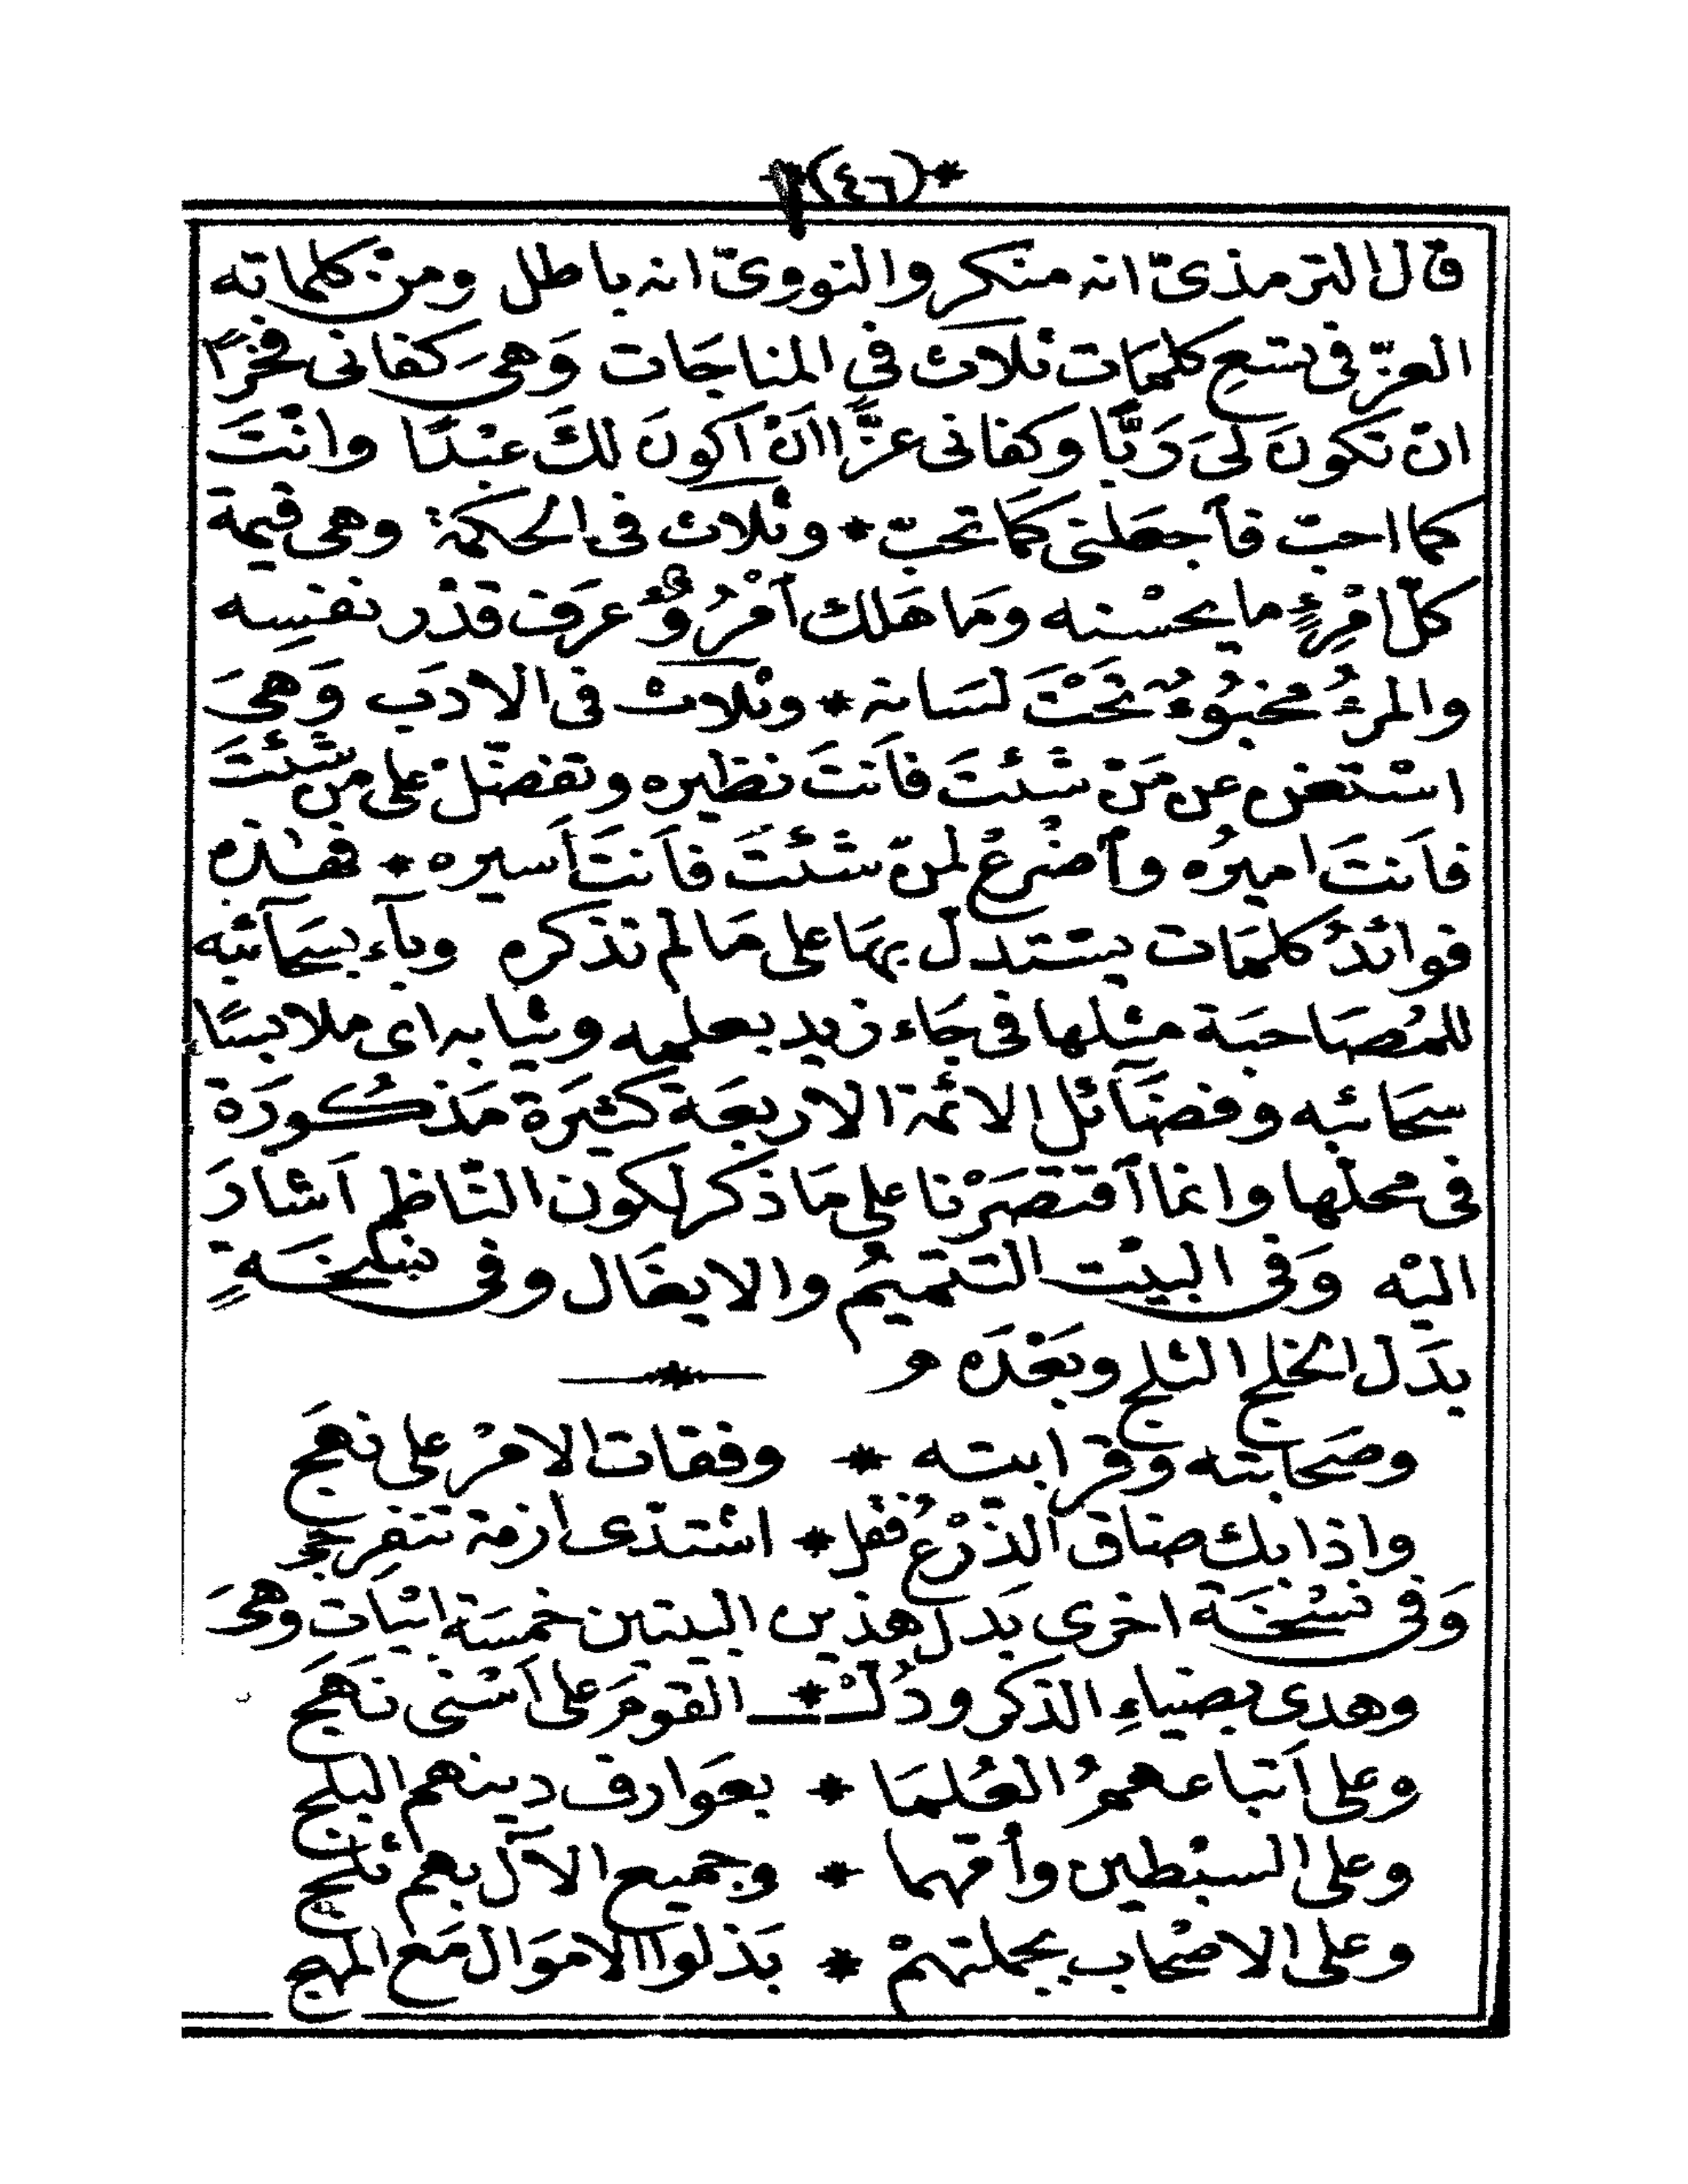 *(٤٦)*
قال الترمذىّ انه منكر والنووىّ انه باطل ومن كلماته
العزّ فى تسعِ كلمَات ثلاث فى المناجَات وَهىَ كفانى فخرًا
ان تكونَ لىَ رَبًّا وكفانى عزًّا انْ اكونَ لكَ عبْدًا وانْتَ
كما احبّ فاَجعَلنى كمَا تحبّ * وثلاث فى الحكمة وهى قيمة
كلّ امْرِئٍ ما يحسْنه وَما هَلك اَمْرُؤٌ عرَف قدْر نفسِه
والمرءُ مخبُوءٌ تَحْتَ لسَانه * وثلاث فى الادَب وَهىَ
اسْتغن عن مَنْ شئتَ فاَنتَ نظيره وتفضّلْ على من شئتَ
فاَنتَ اميرُه واَضْرعْ لمنْ شئتَ فاَنتَ أسيره * فهذه
فوائدُ كلمَات يستدل بهَا على مَا لم نذكره وبآء بسَحآئبه
للمُصَاحبَة مثلها فى جَاء زيد بعلمه وثيابه اى ملابسًا
سحَائبه وفضَآئل الائمة الاربعَة كثيَرة مَذكُورَة
فى محلّها وانما اَقتصَرْنا على مَا ذكر لكون النّاظم اَشارَ
اليْه وَفى البيْت التتميمُ والايغَال وفى نسْخَةٍ
بدَل الخلج الثلج وبَعْدَه و
وصَحَابته وقرابته * وقفات الامْر على نهَج
واذا بك ضاق الذّرْعُ فقل * اشتدّى ازمة تنفرِجى
وَفى نسْخَة اخرى بَدل هذين البيتين خمسَة ابْيَات وهىَ
وهدى بضياءِ الذكر ودُلْـ * ـك القومَ على اَسْنى نَهَج
وعلى اَتباعهمُ العُلمَا * بعَوارف دينهم البلج
وعلى السبْطين وأمّهما * وجميع الآل بهم تلج
وعلى الاصْحاب بجملتهمْ * بَذلوا الامَوَال مَع المهج